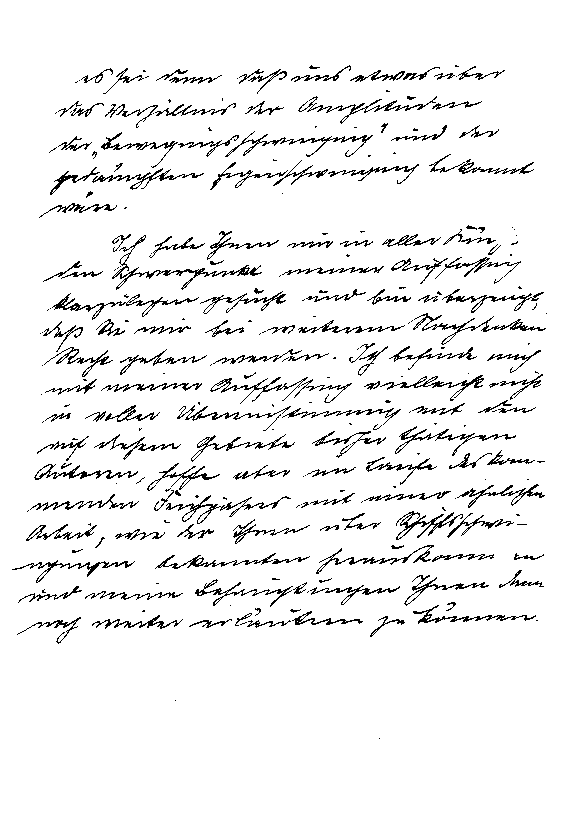 es sei denn daß uns etwas über
das Verhältnis der Amplituden
der „Bewegungsschwingung" und der
gedämpften Eigenschwingung bekannt
wäre.
Ich habe Ihnen nur in aller Kürze
den Schwerpunkt meiner Auffassung
klarzulegen gesucht und bin überzeugt,
daß Sie mir bei weiterem Nachdenken
Recht geben werden. Ich befinde mich
mit meiner Auffassung vielleicht nicht
in voller Übereinstimmung mit den
auf diesem Gebiete bisher thätigen
Autoren, hoffe aber im Laufe des kom-
menden Frühjahrs mit einer ähnlichen
Arbeit, wie der Ihnen über Schiffsschwi-
ngungen bekannten herauskommen
und meine Behauptungen Ihnen dann
noch weiter erläutern zu können.